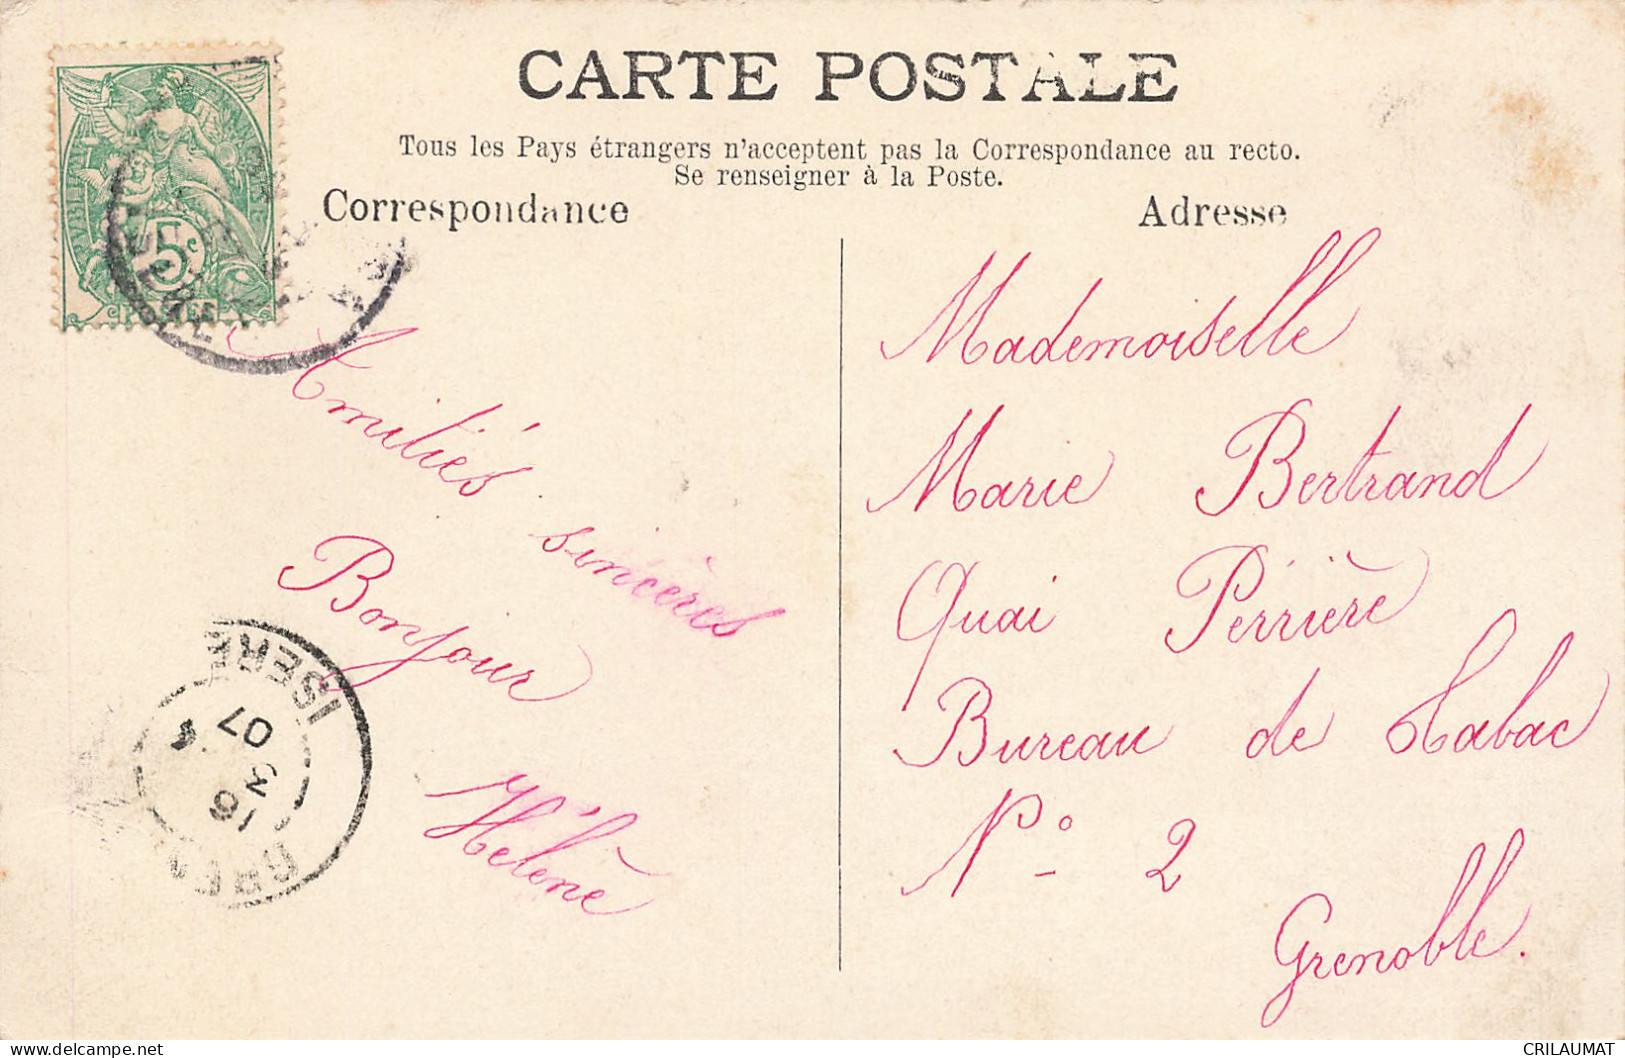 CARTE POSTALE
Tous les Pays étrangers n'acceptent pas la Correspondance au recto.
Se renseigner à la Poste.
Correspondance
Adresse
5c
POSTES
Amitiés sincères
Bonjour
Hélène
ISERE
07
3
16
Mademoiselle
Marie Bertrand
Quai Perrière
Bureau de Tabac
Nº 2
Grenoble.
CRILAUMAT